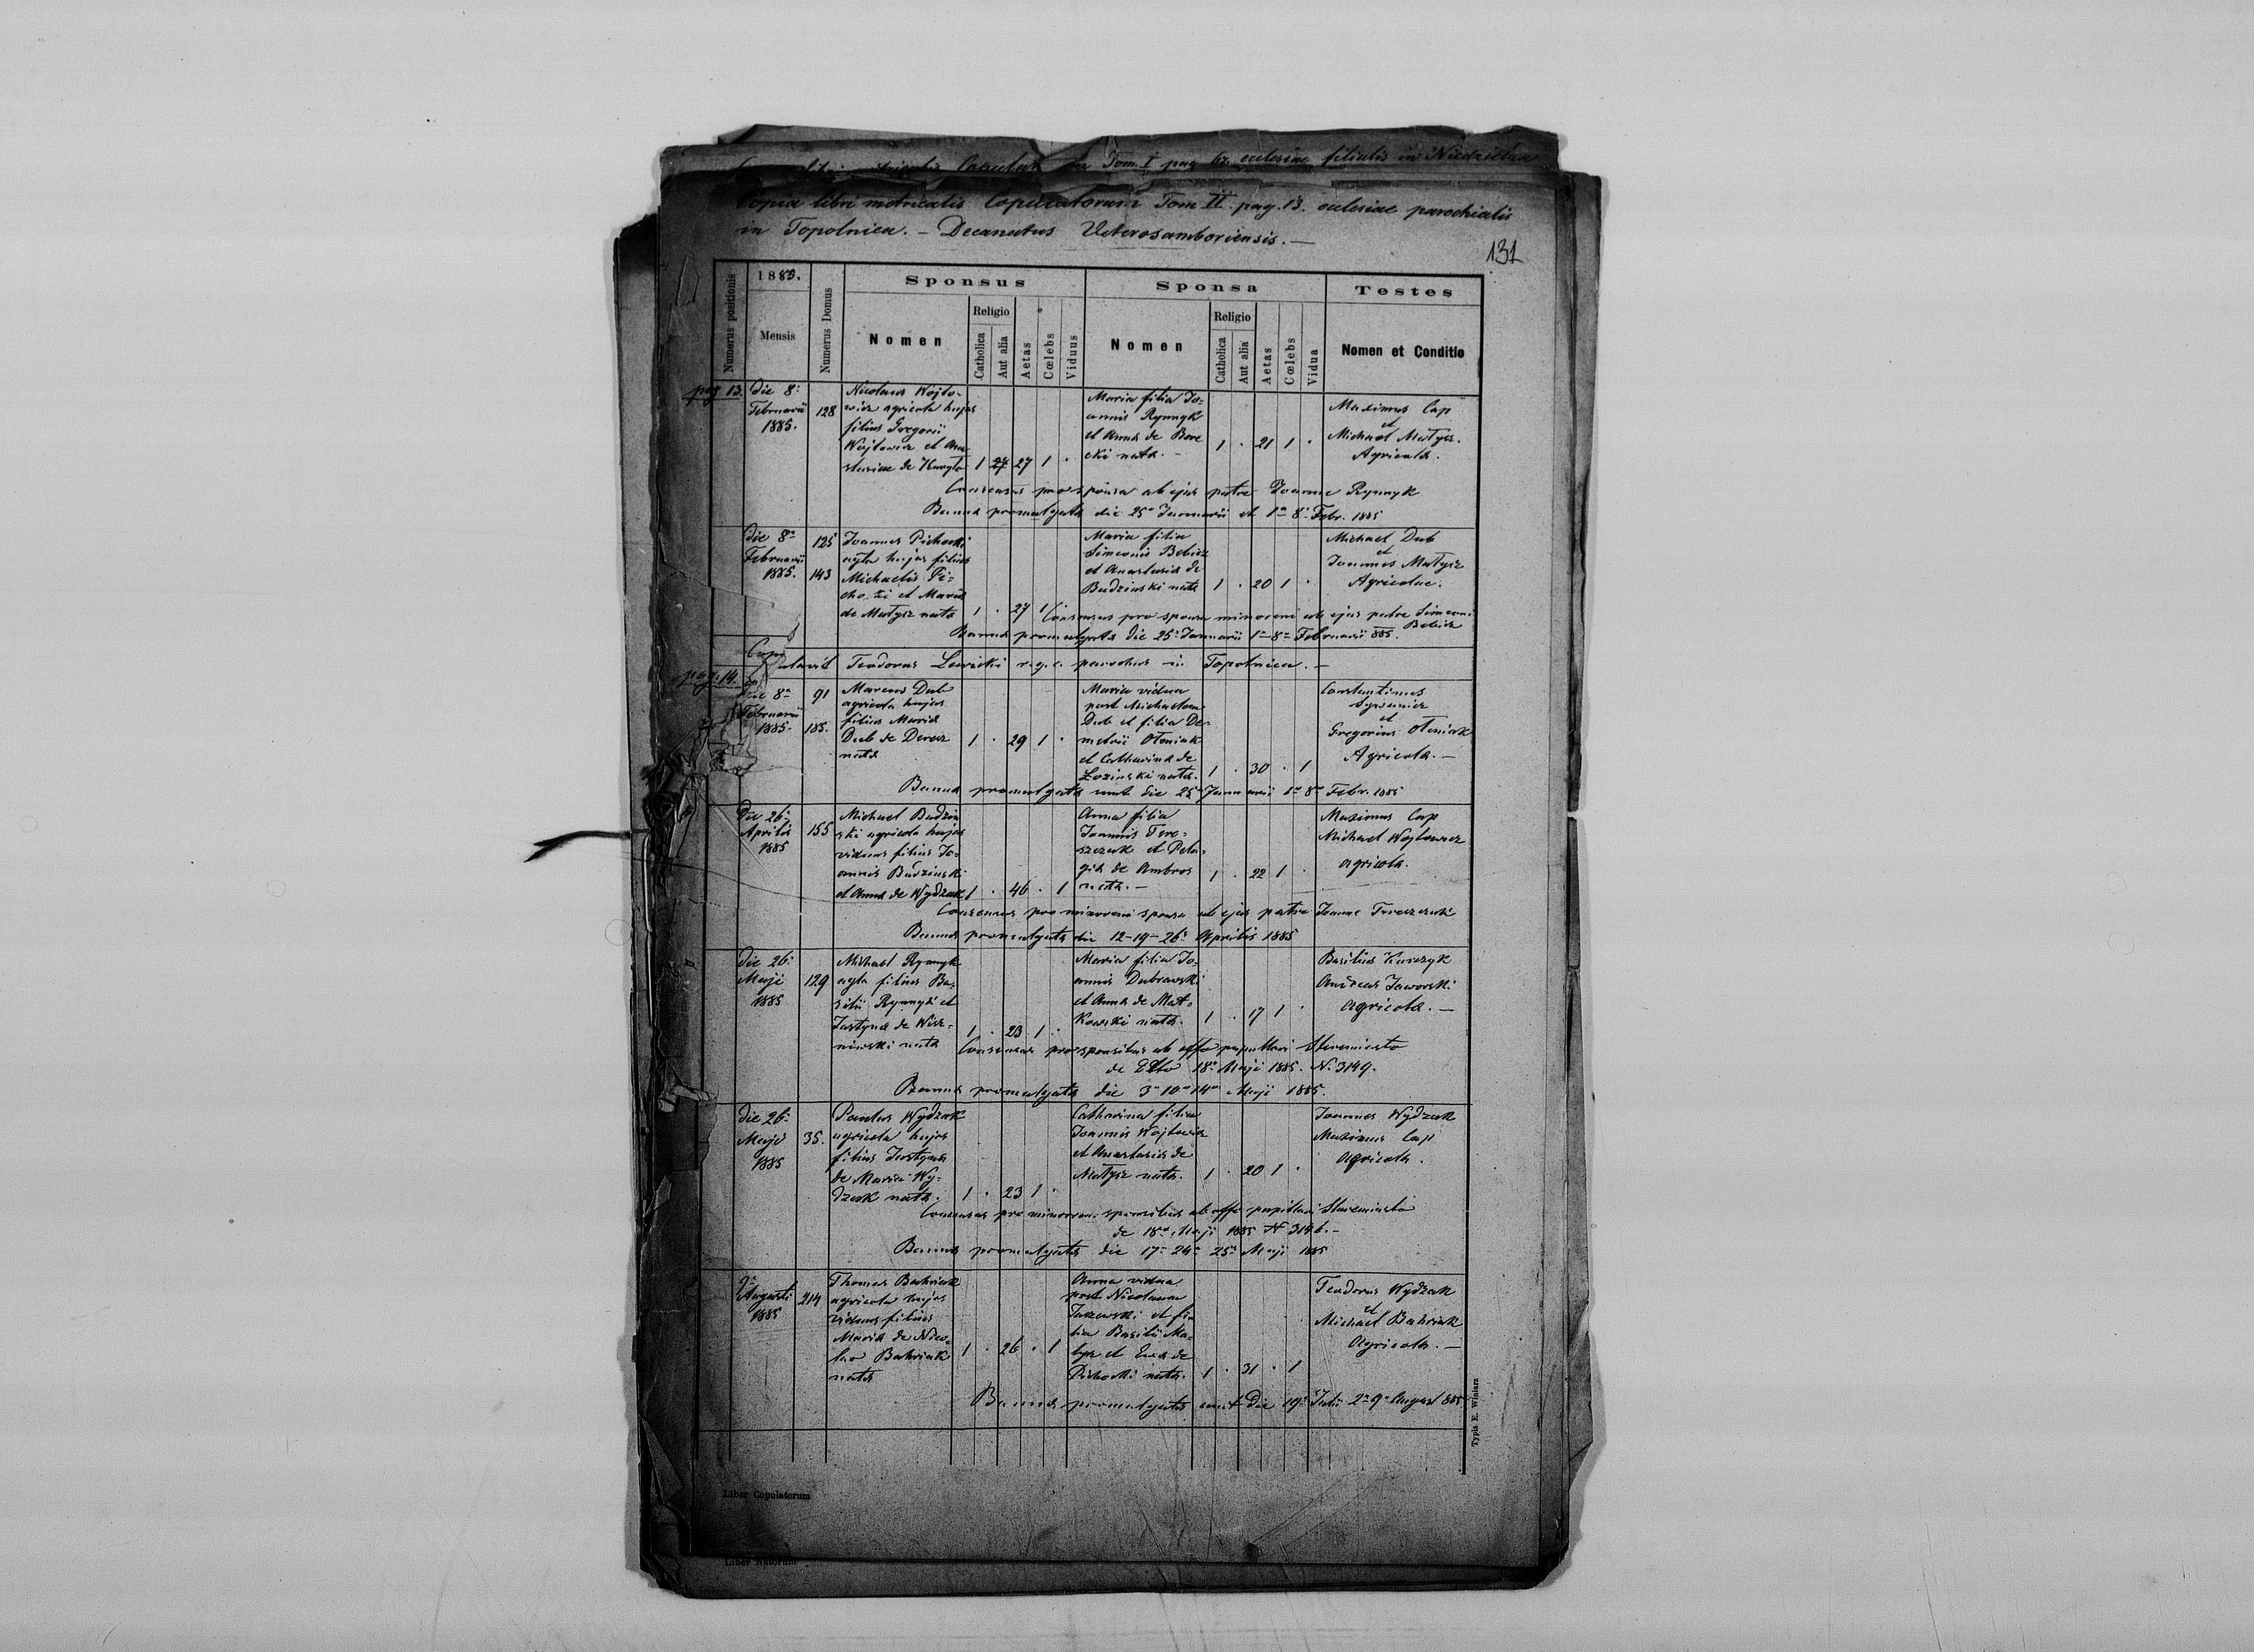 Tom. I pag. ecclesiae filialis in Niedzielna
Copia libri metricalis Copulatorum Tom II. pag. 13. ecclesiae parochialis
in Topolnica. — Decanatus Veterosamboriensis. —
131
Numerus positionis
1885.
Mensis
Numerus Domus
Sponsus
Nomen
Religio
Catholica
Aut alia
Aetas
Cœlebs
Viduus
Sponsa
Nomen
Religio
Catholica
Aut alia
Aetas
Cœlebs
Vidua
Testes
Nomen et Conditio
pag 13.
die 8
Februarii
1885.
128
Nicolaus Wojto-
wicz agricola hujas
filius Gregorii
Wojtowicz et Ana-
stasiae de
1 27 27 1 .
Maria filia Jo-
annis Rynnyk
et Anna de Bore
cki nata. -
1 . 21 1 .
Maximus Cap
et
Michael Matysz.
Agricola.
Consensus pro sponsa ab ejus patre Joanne Rynnyk
Banna promulgata die 25a Januarii et 1a 8a Febr. 1885
die 8a
Februarii
1885.
125
143
Joannes Pichocki
agla hujas filius
Michaelis Pi-
cho-cki et Maria
de Matysz nata
1 . 27 1 .
Maria filia
Simeonis Bebicz
et Anastasia de
Budzinski nata
1 . 20 1 .
Michael Dub
et
Joannes Matysz
Agricolae.
Consensus pro sponsa minoreni ab ejus patre Simeoni
Bebicz
Banna promulgata die 25a Januarii 1a-8a Februarii 885.
Copulavit Teodorus Lewicki r.g.c. parochus in Topolnica. —
pag. 14.
die 8a
Februarii
1885.
91
185.
Marcus Dub
agricola hujas
filius Maria
Dub de Derez
nata
1 . 29 1 .
Maria vidua
post Michaelem
Dub et filia De-
metrii Oleniak
et Catharina de
Lozinski nata.
1 . 30 . 1
Constantinus
et
Gregorius Oleniak
Agricola. —
Banna promulgata sunt die 25a Januarii 1a 8a Febr. 1885
Die 26a
Aprilis
1885
155
Michael Budzin
ski agricola hujas
viduus filius Jo-
annis Budzinski
et Anna de Wydzak
1 . 46 . 1
Anna filia
Joannis Tere-
szczak et Pela-
gia de Ambros
nata. —
1 . 22 1 .
Maximus Cap
Michael Wojtowicz
agricola.
Consensus pro minoreni sponsa ab ejus patre Joanne Tereszczak
Banna promulgata die 12-19-26a Aprilis 1885
die 26a
Maji
1885
129
Michael Rynnyk
agla filius Ba-
silii Rynnyk et
Justyna de Wisz-
niewski nata
1 . 23 1 .
Maria filia Jo-
annis Dubrawski
et Anna de Mat-
kowski nata.
1 . 17 1 .
Basilius Kurczyk
Andreas Jaworski
agricola. —
Consensus pro sponsibus ab offo pupillari Staremiasto
de Dtto 18a Maji 1885. N. 3149.
Banna promulgata die 3a 10a 14a Maji 1885.
die 26a
Maji
1885
35.
Paulus Wydzak
agricola hujas
filius Justyna
de Maria Wy-
dzak nata.
1 . 23 1 .
Catharina filia
Joannis Wojtowicz
et Anastasia de
Matysz nata.
1 . 20 1 .
Joannes Wydzak
Maximus Cap
agricola.
Consensus pro minoreni sponsibus ab offo pupillari Staremiasto
de 18a Maji 1885 N 3146.—
Banna promulgata die 17a 24a 25a Maji 1885
9a
Augusti
1885
214
Thomas Bahriak
agricola hujas
viduus filius
Maria de Nico-
lao Bahriak
nata
1 . 26 . 1
Anna vidua
post Nicolaum
Juszewski et fi-
lia Basilii Ma-
tysz et Eva de
Pichocki nata.
1 . 31 . 1
Teodorus Wydzak
et
Michael Bahriak
agricola. —
Banna promulgata sunt die 19a Julii 2a 9a August 885
Typis E. Winiarz
Liber Copulatorum
Liber Natorum